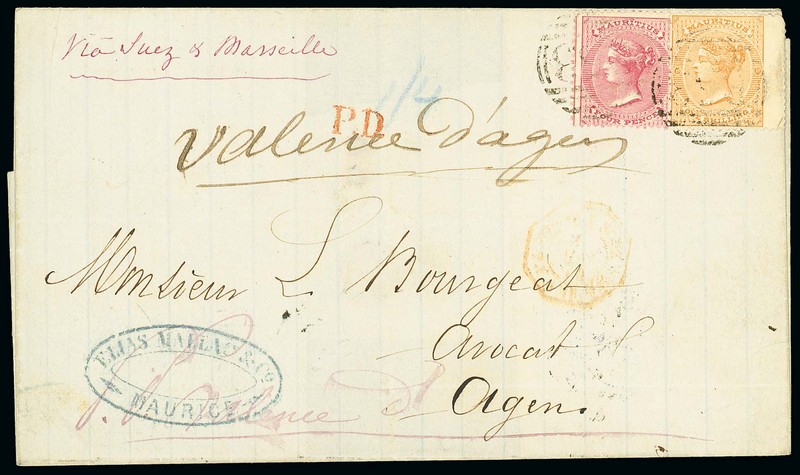 Via Suez & Marseille
MAURITIUS
FOUR PENCE
MAURITIUS
SHILLING
1/4
P.D.
Valence d'agen
Monsieur L Bourgeat
Avocat
Agen
ELIAS MALLAC & Co
MAURICE
Valence d'